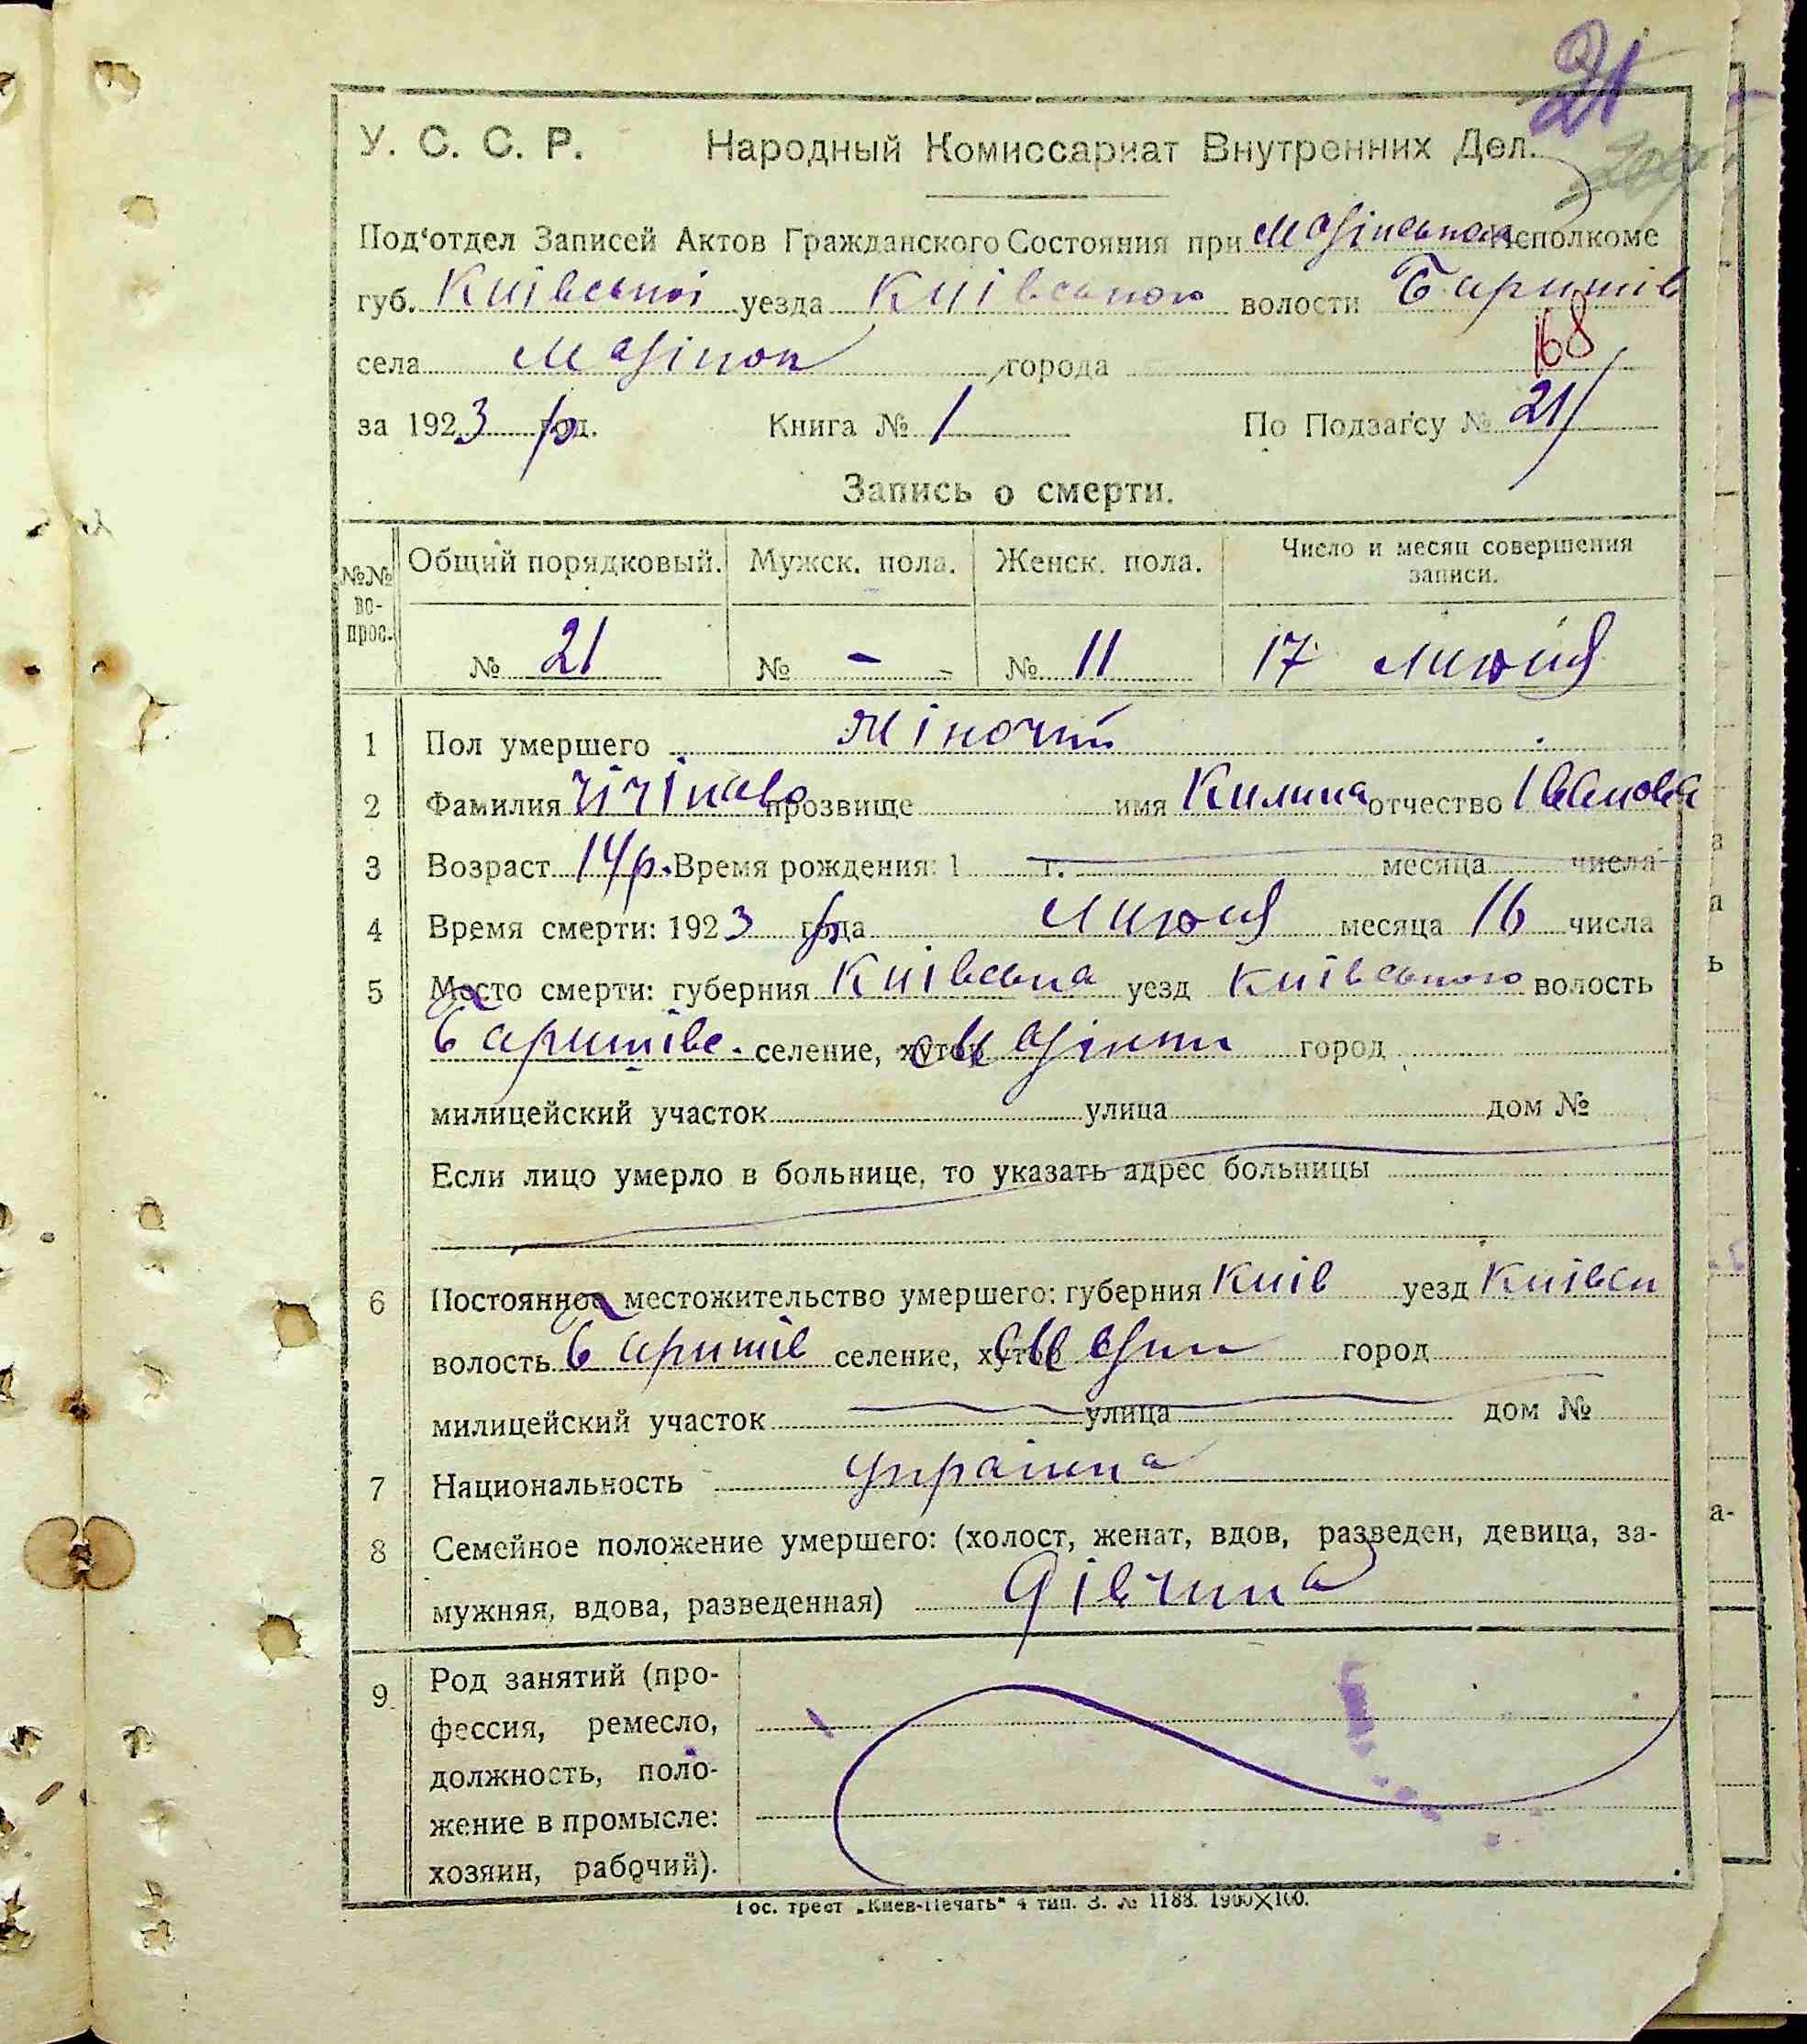 21
У. С. С. Р. Народный Комиссариат Внутренних Дел.
Под‘отдел Записей Актов Гражданского Состояния при Исполкоме
губ. Київської уезда Київського волости Баришів
села города
168
за 1923 р год. Книга № 1 По Подзагсу № 21
Запись о смерти.
№№ во-прос. Общий порядковый. Мужск. пола. Женск. пола. Число и месяц совершения записи.
№ 21 № - № 11 17
1 Пол умершего Жіночий
2 Фамилия прозвище имя Килина отчество Іванова
3 Возраст 14 р. Время рождения: 1 г. месяца числа
4 Время смерти: 1923 года р месяца 16 числа
5 Место смерти: губерния Київська уезд Київського волость
Баришівс. селение, хутор город
милицейский участок улица дом №
Если лицо умерло в больнице, то указать адрес больницы
6 Постоянное местожительство умершего: губерния Київ уезд Київськ
волость Баришів селение, хутор город
милицейский участок улица дом №
7 Национальность Українка
8 Семейное положение умершего: (холост, женат, вдов, разведен, девица, за-
мужняя, вдова, разведенная) Дівчина
9 Род занятий (про-
фессия, ремесло,
должность, поло-
жение в промысле:
хозяин, рабочий).
Гос. трест „Киев-Печать“ 4 тип. З. № 1188. 1900X100.